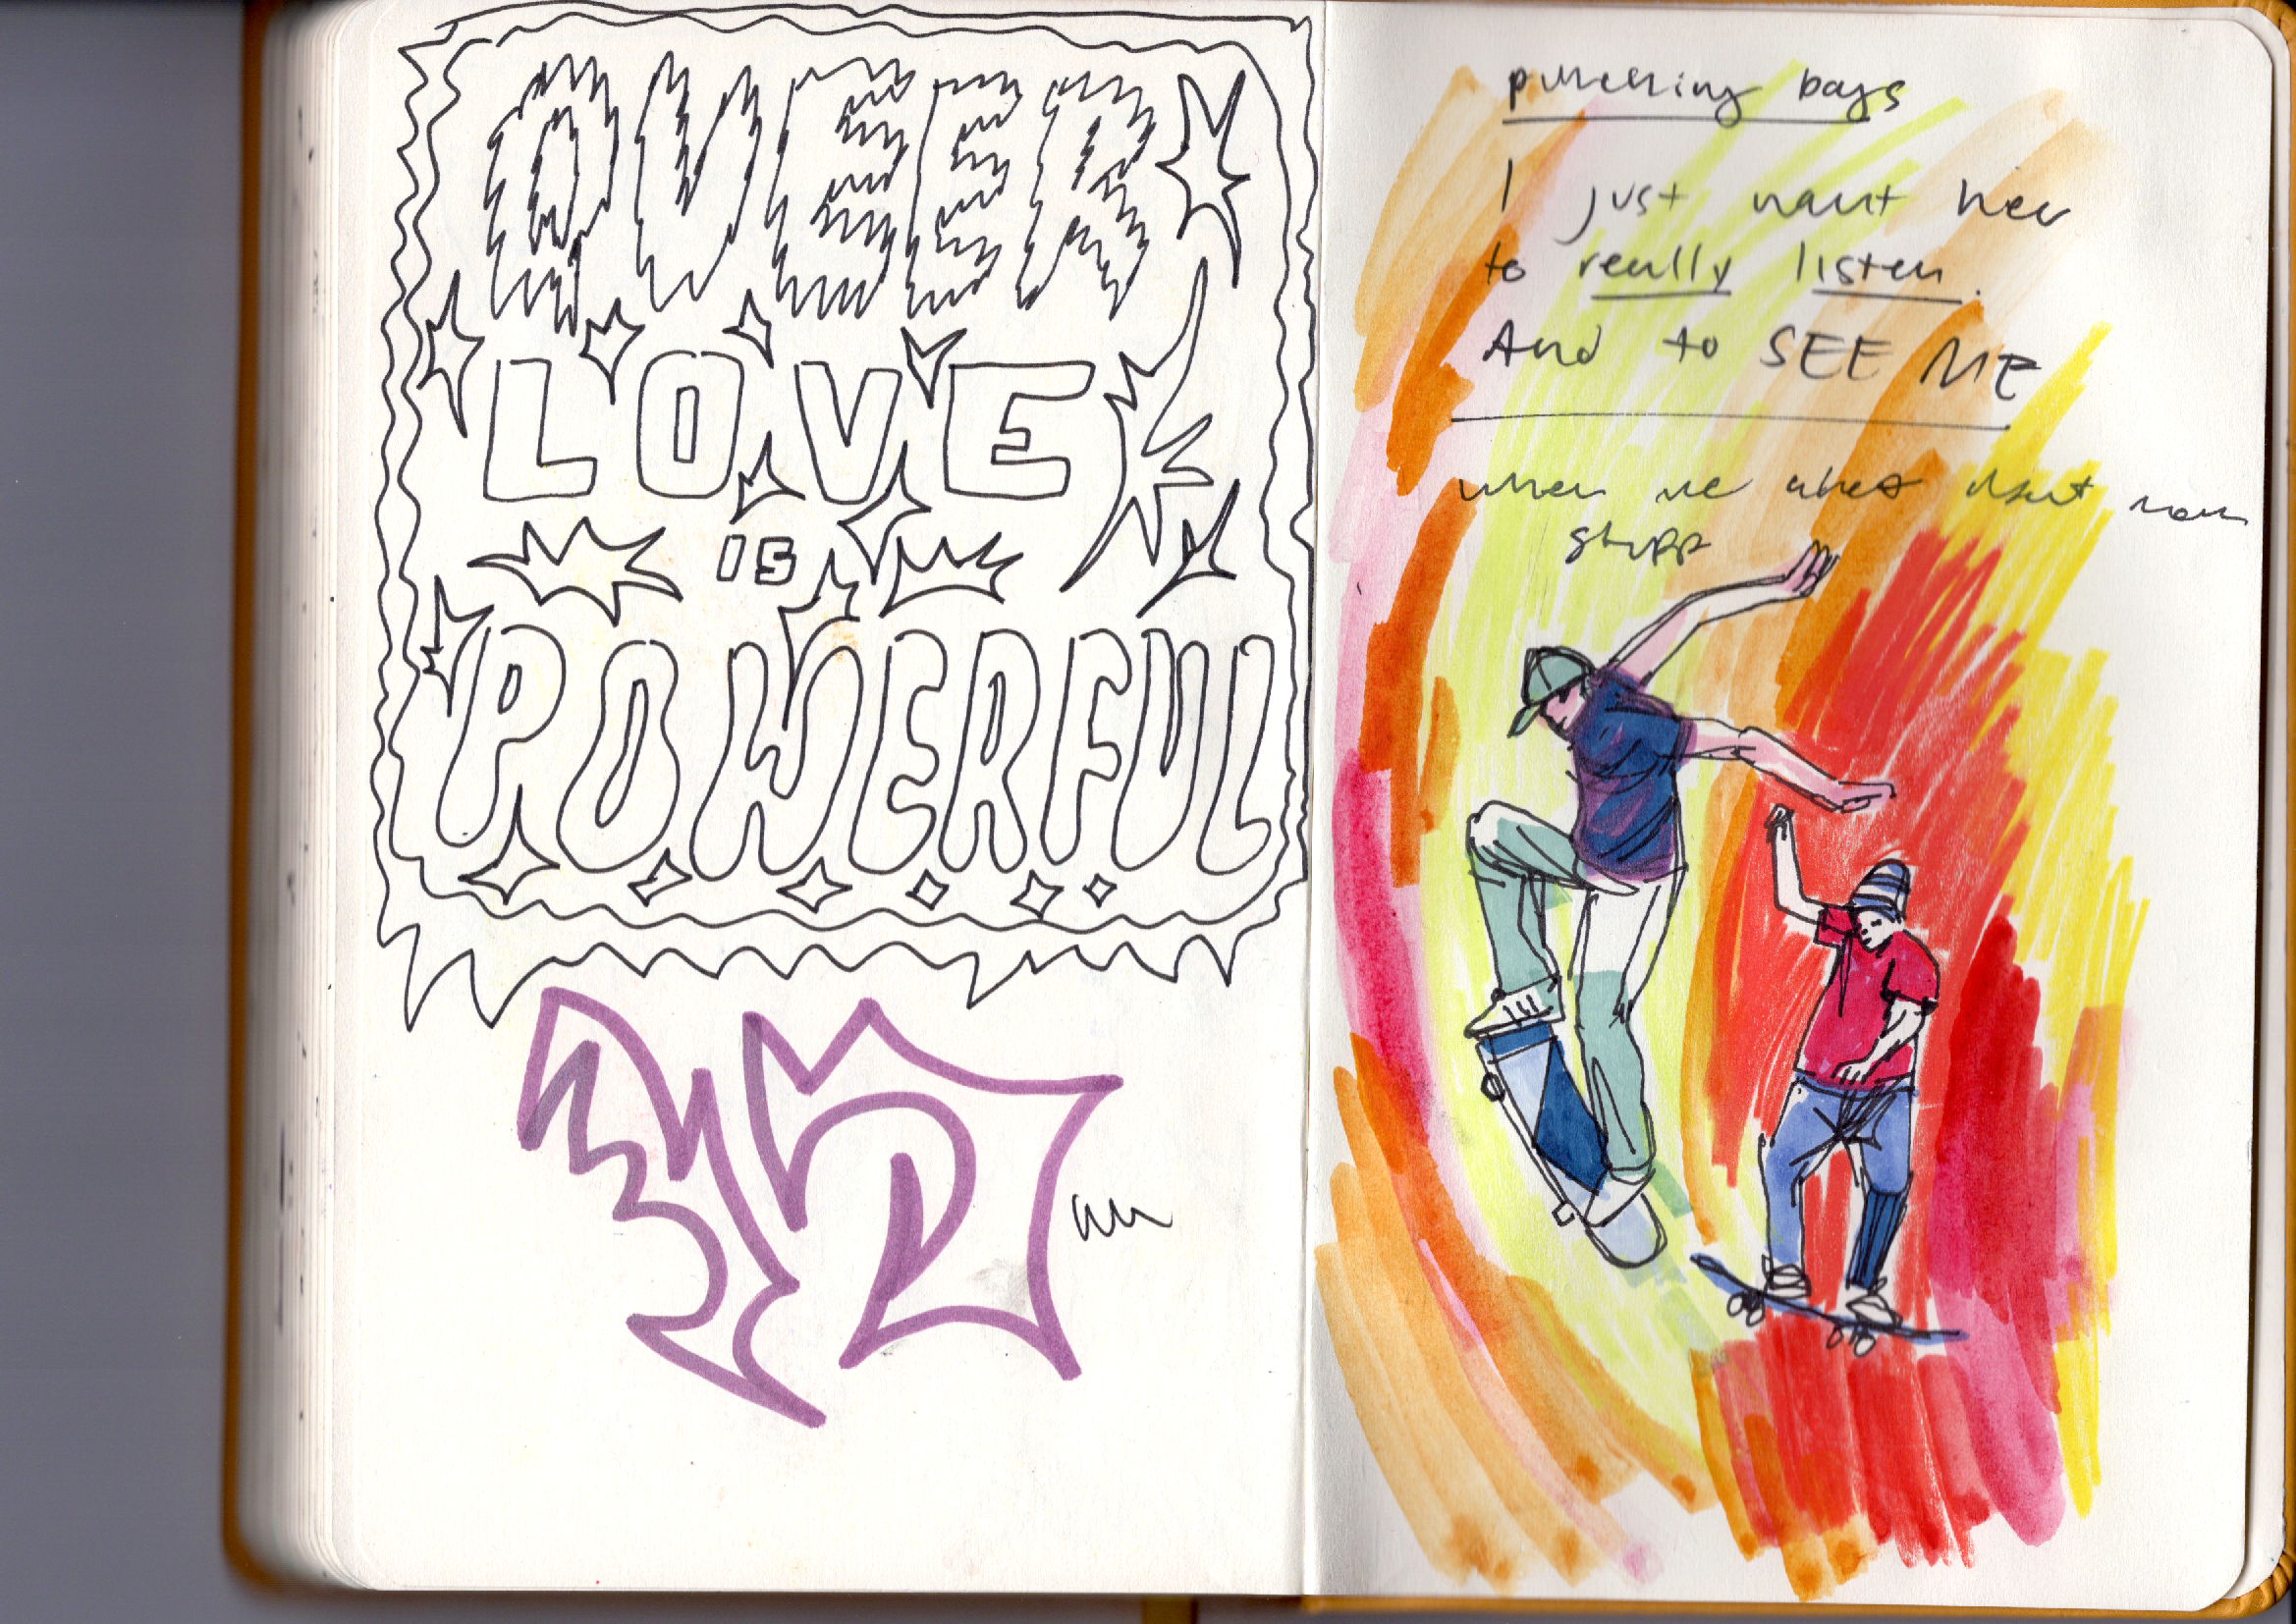 QUEER
LOVE
IS
POWERFUL
punching bags
I just want her
to really listen.
And to SEE ME
when we